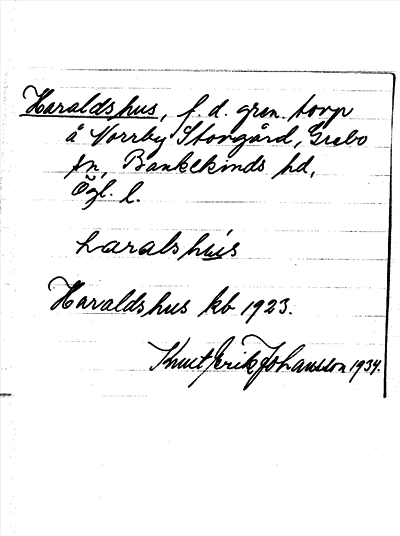 Haraldshus, f. d. gren. torp
å Norrby Storgård, Grebo
sn, Bankekinds hd,
Ögl. l.
haralshús
Haraldshus kb 1923.
Knut Erik Johansson 1934.